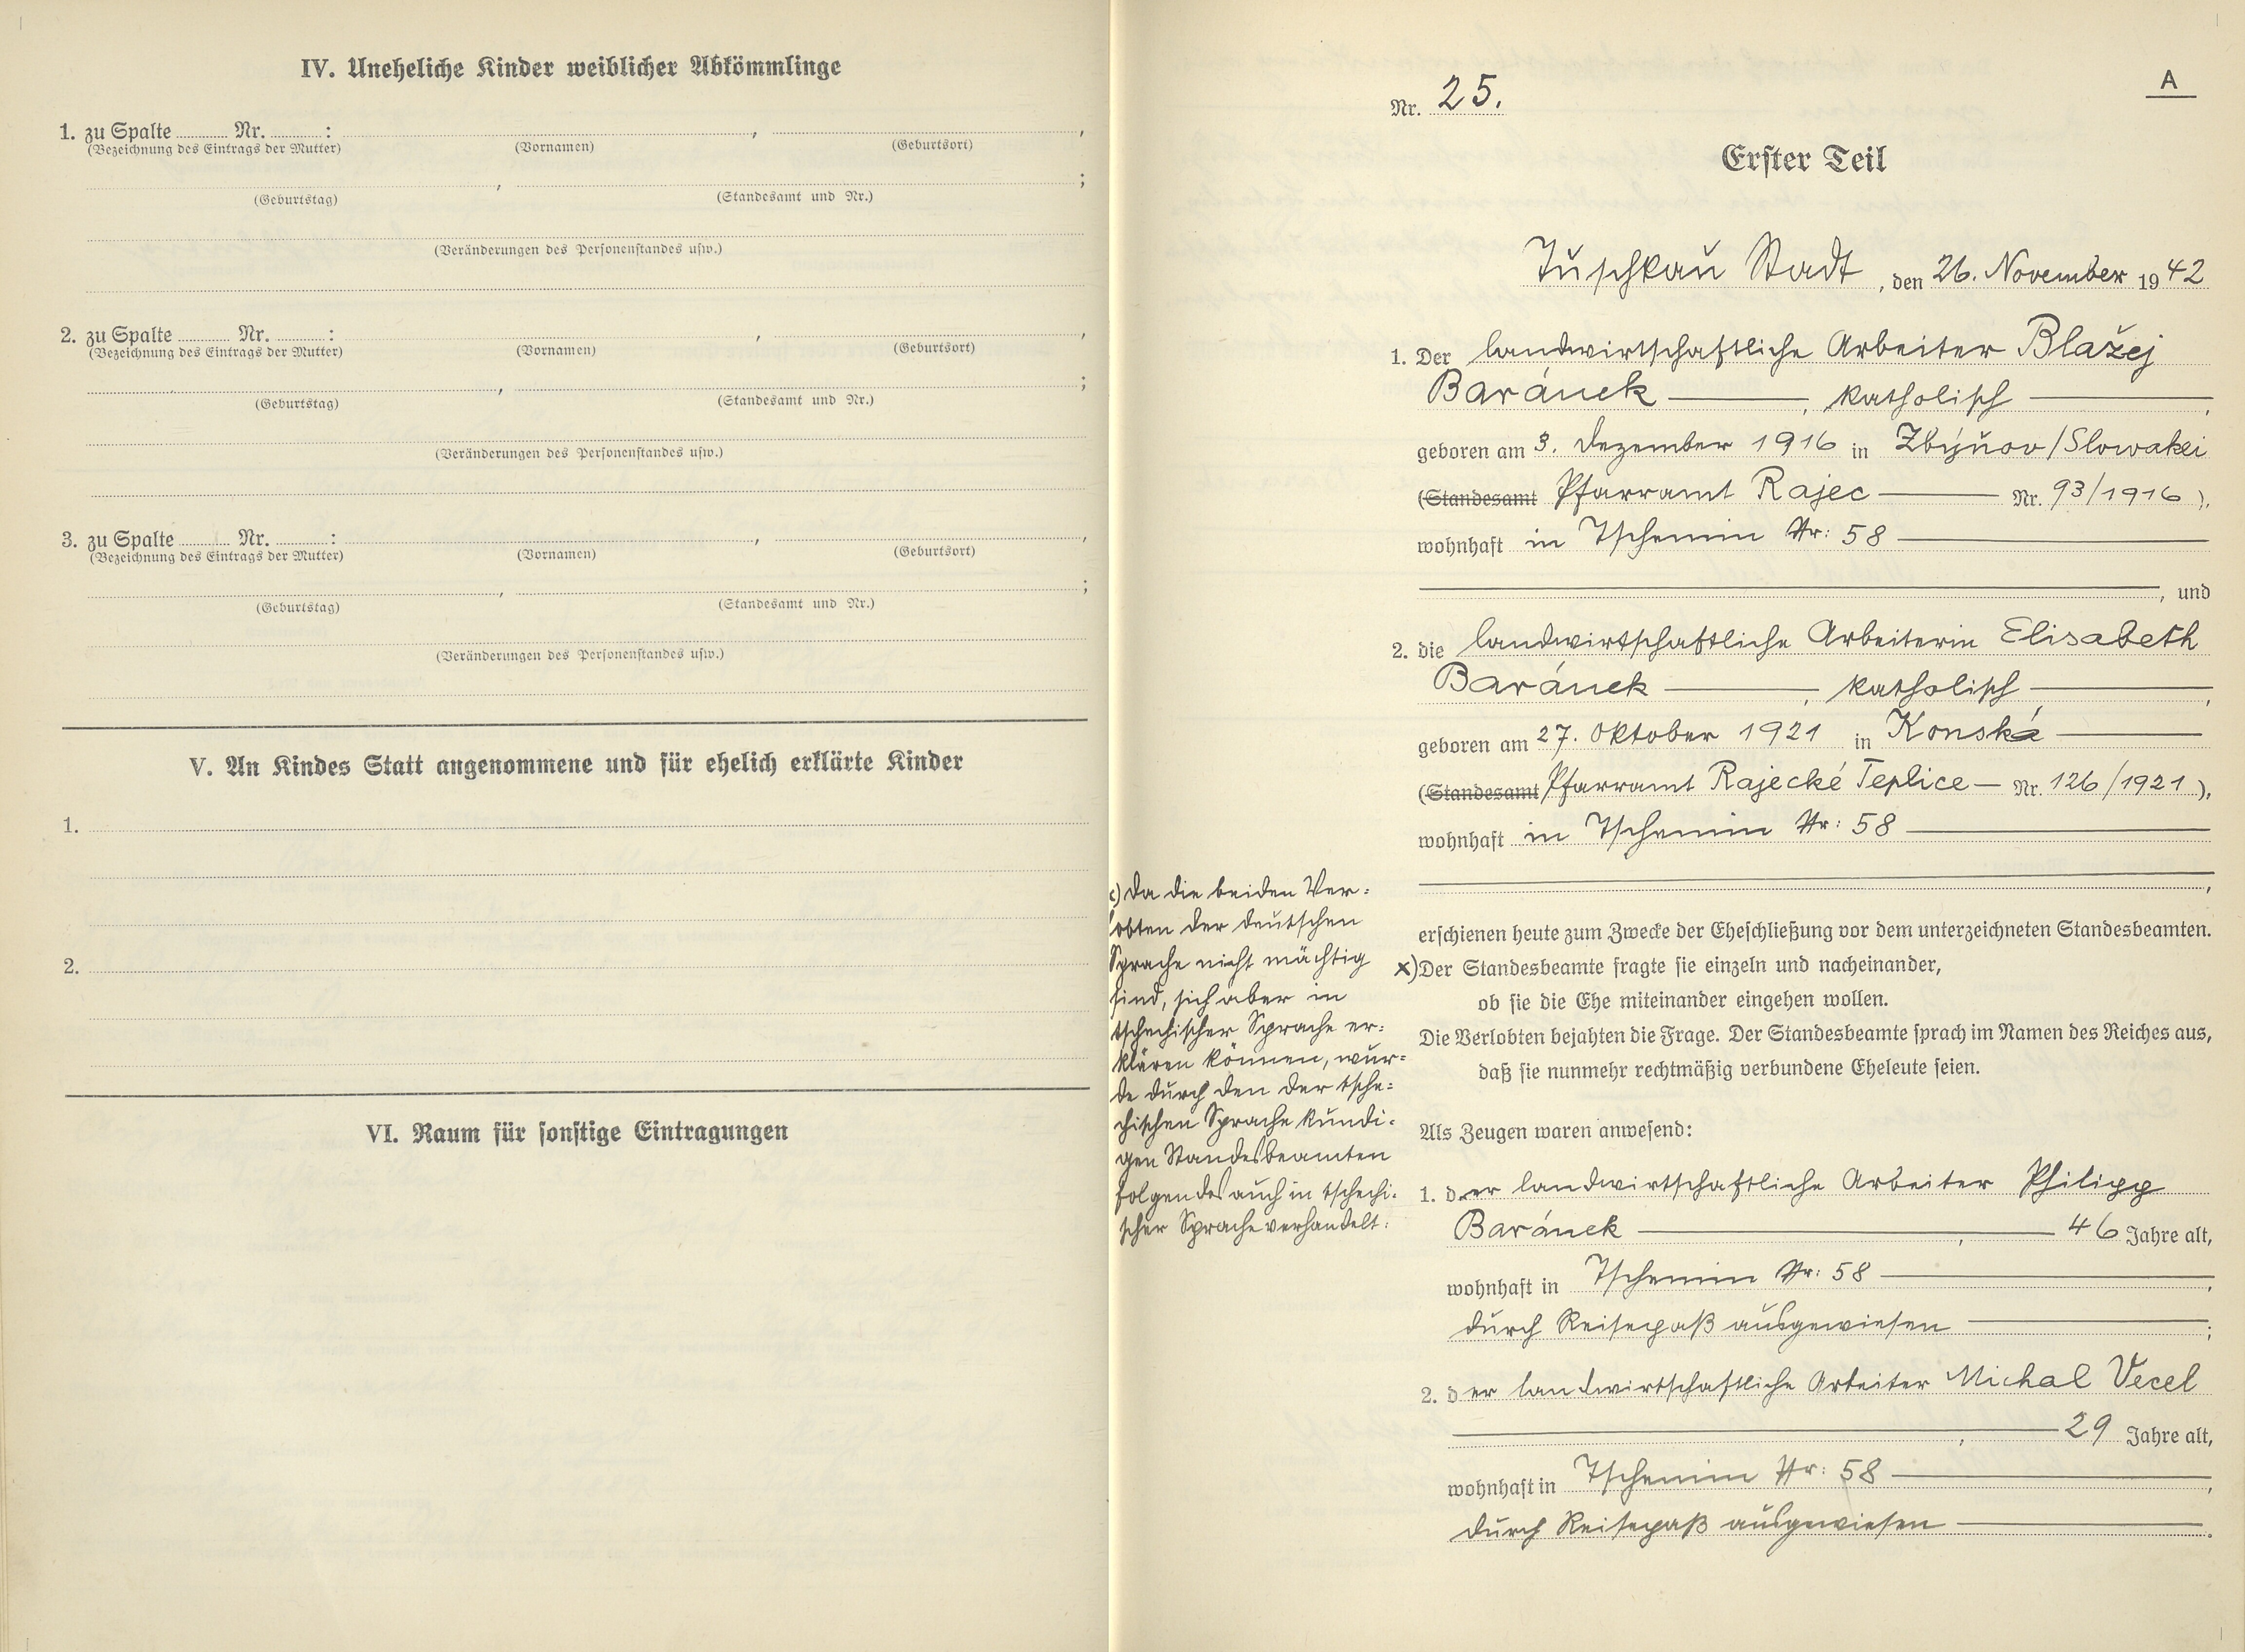 IV. Uneheliche Kinder weiblicher Abkömmlinge
1. zu Spalte ........ Nr. ........ : , ,
(Bezeichnung des Eintrags der Mutter) (Vornamen) (Geburtsort)
, ;
(Geburtstag) (Standesamt und Nr.)
(Veränderungen des Personenstandes usw.)
2. zu Spalte ........ Nr. ........ : , ,
(Bezeichnung des Eintrags der Mutter) (Vornamen) (Geburtsort)
, ;
(Geburtstag) (Standesamt und Nr.)
(Veränderungen des Personenstandes usw.)
3. zu Spalte ........ Nr. ........ : , ,
(Bezeichnung des Eintrags der Mutter) (Vornamen) (Geburtsort)
, ;
(Geburtstag) (Standesamt und Nr.)
(Veränderungen des Personenstandes usw.)
V. An Kindes Statt angenommene und für ehelich erklärte Kinder
1.
2.
VI. Raum für sonstige Eintragungen
A
Nr. 25.
Erster Teil
Tuschkau Stadt, den 26. November 1942
1. Der landwirtschaftliche Arbeiter Blažej
Baránek, katholisch,
geboren am 3. Dezember 1916 in Zbýňov/Slowakei
(Standesamt Pfarramt Rajec Nr. 93/1916),
wohnhaft in Tschemin Nr: 58
, und
2. die landwirtschaftliche Arbeiterin Elisabeth
Baránek, katholisch,
geboren am 27. Oktober 1921 in Konská
(Standesamt Pfarramt Rajecké Teplice Nr. 126/1921),
wohnhaft in Tschemin Nr: 58
,
erschienen heute zum Zwecke der Eheschließung vor dem unterzeichneten Standesbeamten.
x) Der Standesbeamte fragte sie einzeln und nacheinander,
ob sie die Ehe miteinander eingehen wollen.
Die Verlobten bejahten die Frage. Der Standesbeamte sprach im Namen des Reiches aus,
daß sie nunmehr rechtmäßig verbundene Eheleute seien.
Als Zeugen waren anwesend:
1. der landwirtschaftliche Arbeiter Philipp
Baránek, 46 Jahre alt,
wohnhaft in Tschemin Nr: 58,
durch Reisepaß ausgewiesen;
2. der landwirtschaftliche Arbeiter Michal Vecel
, 29 Jahre alt,
wohnhaft in Tschemin Nr: 58,
durch Reisepaß ausgewiesen.
) Da die beiden Ver=
lobten der deutschen
Sprache nicht mächtig
sind, sich aber in
tschechischer Sprache er=
klären können, wur=
de durch den der tsche=
chischen Sprache kundi=
gen Standesbeamten
folgendes auch in tschechi=
scher Sprache verhandelt: